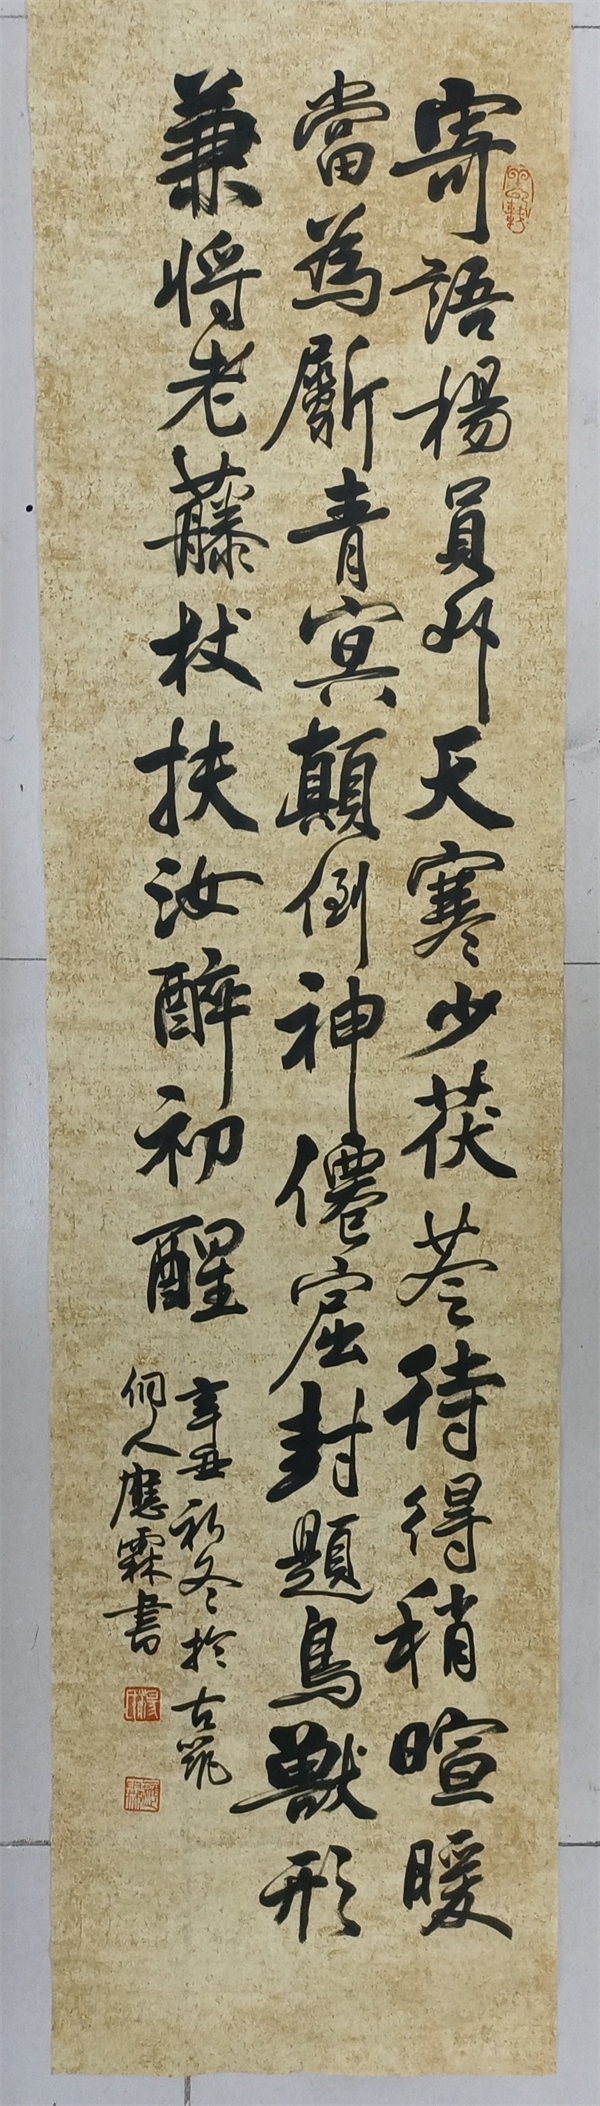 寄語楊員外天寒少茯苓待得稍暄暖
當為斸青冥顛倒神僊窟封題鳥獸形
兼將老藤杖扶汝醉初醒
辛丑初冬於古凱
侗人應霖書